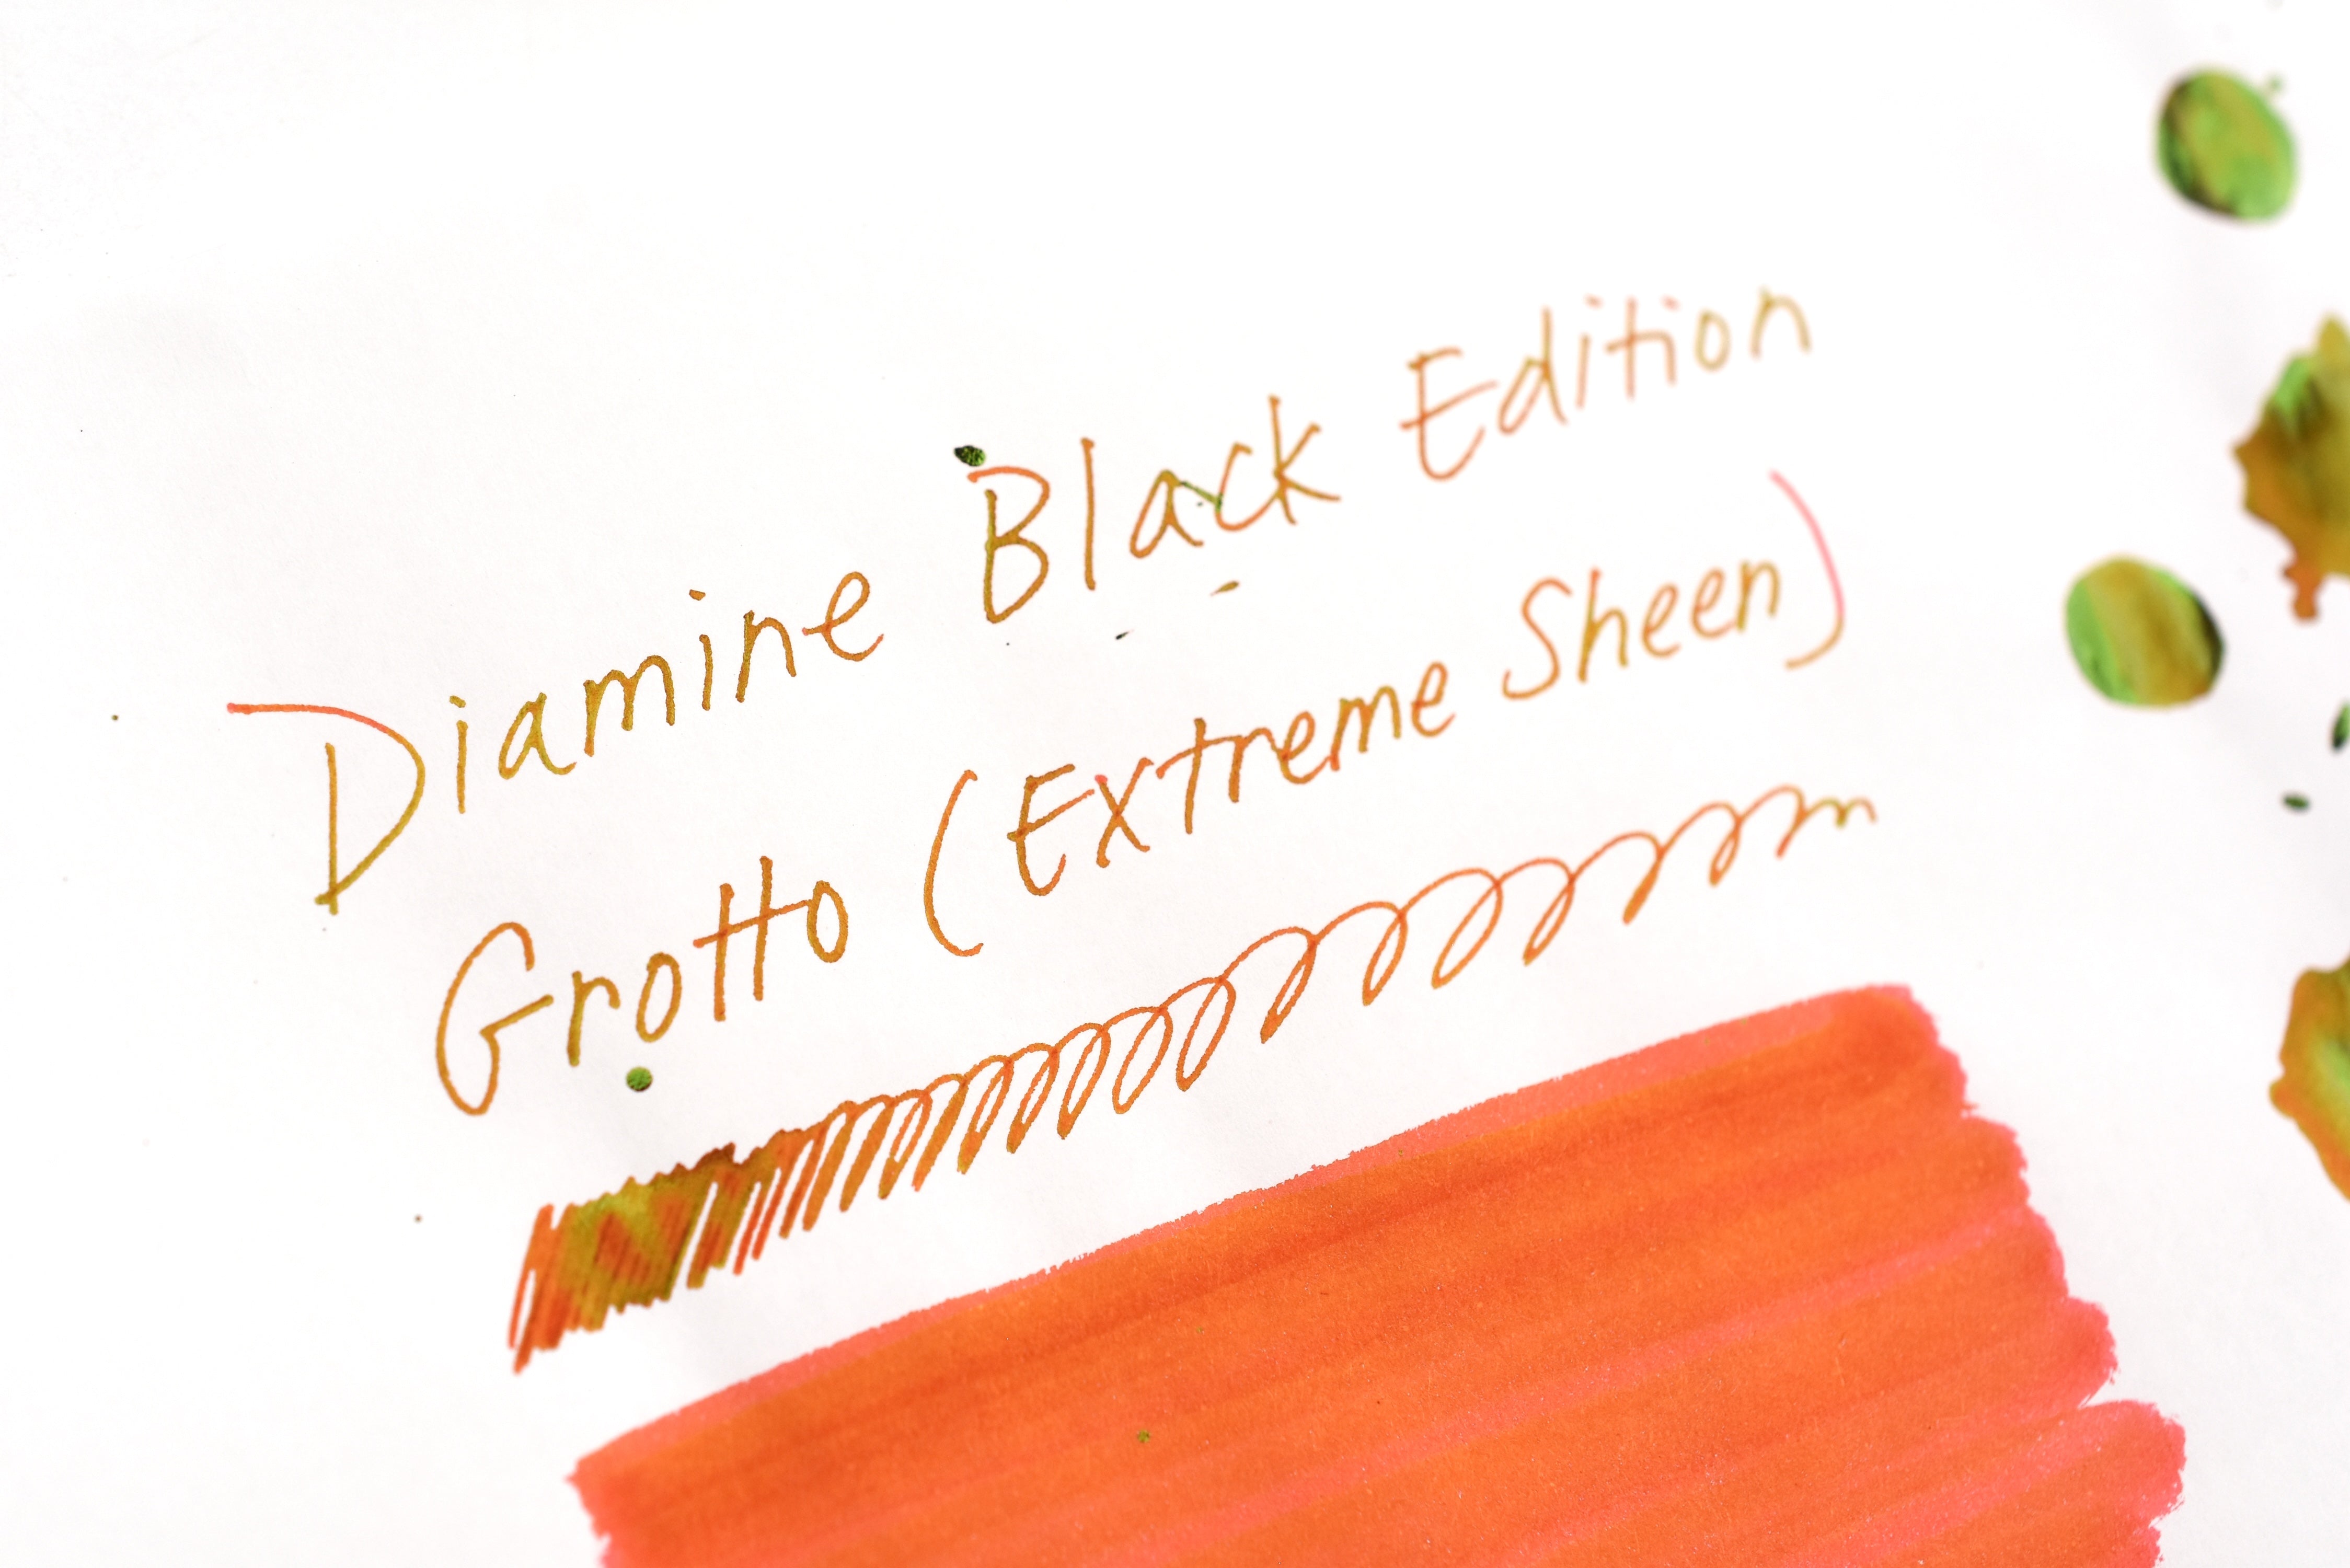 Diamine Black Edition
Grotto (Extreme Sheen)